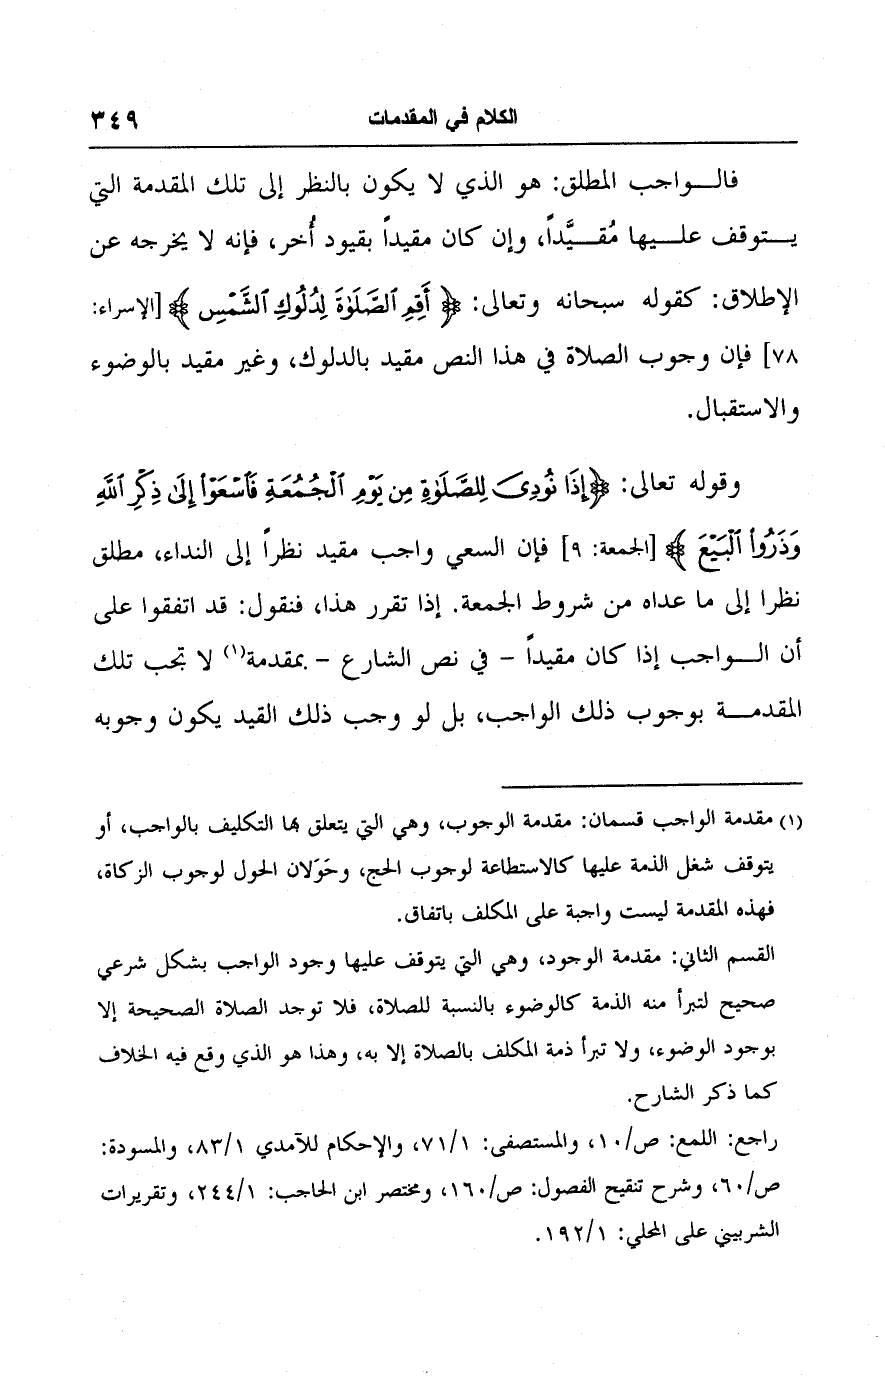 الكلام في المقدمات ٣٤٩
فالـواجب المطلق: هو الذي لا يكون بالنظر إلى تلك المقدمة التي
يـتوقف علـيها مُقـيَّداً، وإن كان مقيداً بقيود أُخر، فإنه لا يخرجه عن
الإطلاق: كقوله سبحانه وتعالى: ﴿أَقِمِ ٱلصَّلَوٰةَ لِدُلُوكِ ٱلشَّمْسِ﴾ [الإسراء:
٧٨] فإن وجوب الصلاة في هذا النص مقيد بالدلوك، وغير مقيد بالوضوء
والاستقبال.
وقوله تعالى: ﴿إِذَا نُودِىَ لِلصَّلَوٰةِ مِن يَوْمِ ٱلْجُمُعَةِ فَٱسْعَوْا۟ إِلَىٰ ذِكْرِ ٱللَّهِ
وَذَرُوا۟ ٱلْبَيْعَ﴾ [الجمعة: ٩] فإن السعي واجب مقيد نظراً إلى النداء، مطلق
نظرا إلى ما عداه من شروط الجمعة. إذا تقرر هذا، فنقول: قد اتفقوا على
أن الـواجب إذا كان مقيداً - في نص الشارع - بمقدمة(١) لا تجب تلك
المقدمـة بوجوب ذلك الواجب، بل لو وجب ذلك القيد يكون وجوبه
(١) مقدمة الواجب قسمان: مقدمة الوجوب، وهي التي يتعلق بها التكليف بالواجب، أو
يتوقف شغل الذمة عليها كالاستطاعة لوجوب الحج، وحَوَلان الحول لوجوب الزكاة،
فهذه المقدمة ليست واجبة على المكلف باتفاق.
القسم الثاني: مقدمة الوجود، وهي التي يتوقف عليها وجود الواجب بشكل شرعي
صحيح لتبرأ منه الذمة كالوضوء بالنسبة للصلاة، فلا توجد الصلاة الصحيحة إلا
بوجود الوضوء، ولا تبرأ ذمة المكلف بالصلاة إلا به، وهذا هو الذي وقع فيه الخلاف
كما ذكر الشارح.
راجع: اللمع: ص/١٠، والمستصفى: ٧١/١، والإحكام للآمدي ٨٣/١، والمسودة:
ص/٦٠، وشرح تنقيح الفصول: ص/١٦٠، ومختصر ابن الحاجب: ٢٤٤/١، وتقريرات
الشربيني على المحلي: ١٩٢/١.